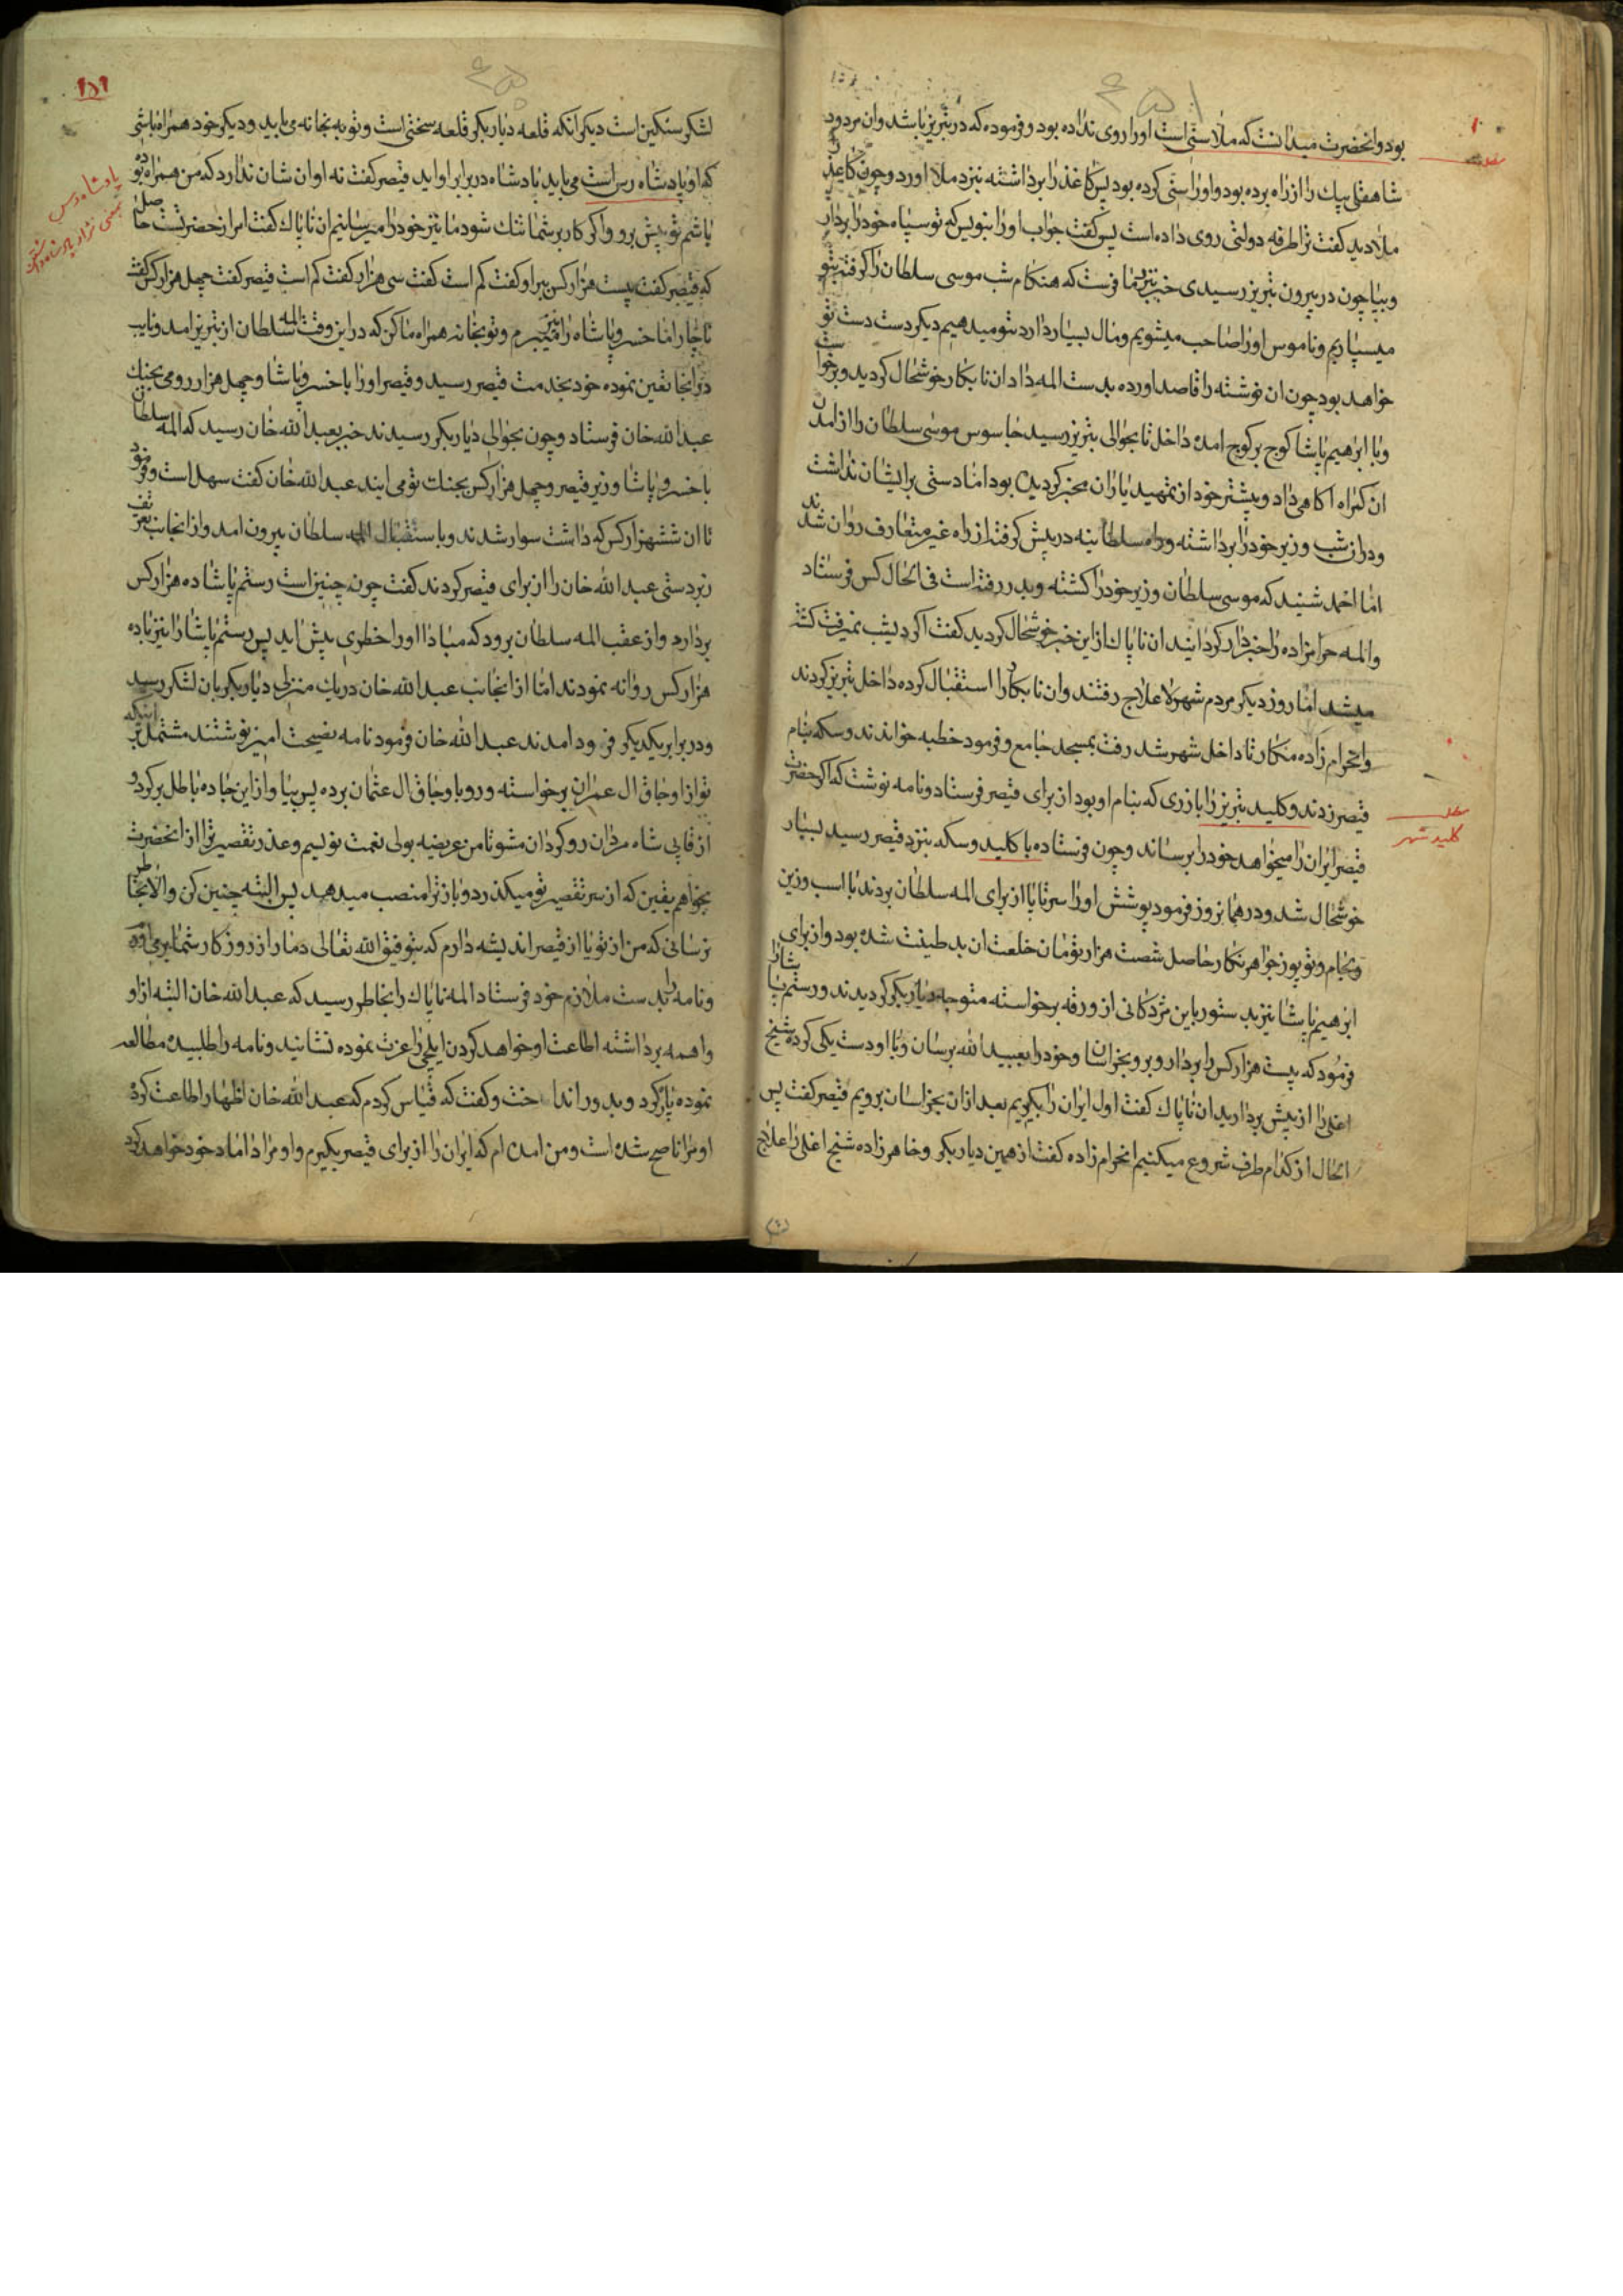 بود وانحضرت میدانست که ملا سنی است اورا روی نداده بود وفرموده که در تبریز باشد وان مردود
شاهقلی بیک را از راه برده بود واورا سنی کرده بود پس کاغذ را برداشته نیزد ملا اورد وچون کاغذ را
ملا دید کفت ترا طرفه دولتی روی داده است پس کفت جواب اورا بنویس که تو سپاه خود را بردار
وبیا چون در بیرون تبریز رسیدی خبر بما فرست که هنکام شب موسی سلطان را کرفته بتو
میسپاریم وناموس اورا صاحب میشویم ومال بسیار دارد بتو میدهیم دیکر دست دست تو
خواهد بود چون ان نوشته را قاصد اورده بدست المه داد ان نابکار خوشحال کردید وبرخواست
وبا ابرهیم پاشا کوچ بر کوچ امده داخل تا بحوالی تبریز رسید جاسوس موسی سلطان را از امدن
ان کمراه اکاهی داد وپیشتر خود از تمهید یاران مخبر کردیده بود اما دستی بر ایشان نداشت
ودر ان شب وزیر خود را برداشته وراه سلطانیه در پیش کرفته از راه غیر متعارف روان شدند
اما احمد شنید که موسی سلطان وزیر خود را کشته وبدر رفته است فی الحال کس فرستاد
والمه حرامزاده را خبردار کردانیدند ان ناپاک از این خبر خوشحال کردید کفت اکر دیشب نمیرفت کشته
میشد اما روز دیکر مردم شهر لاعلاج رفتند وان نابکار را استقبال کرده داخل تبریز کردند
وانحرام زاده مکار تا داخل شهر شد رفت بمسجد جامع وفرمود خطبه خواندند وسکه بنام
قیصر زدند وکلید تبریز را با زری که بنام او بود از برای قیصر فرستاد ونامه نوشت که اکر حضرت
قیصر ایران را میخواهد خود را برساند وچون فرستاده با کلید وسکه بنزد قیصر رسید بسیار
خوشحال شد ودر همانروز فرمود پوشش اورا سرتاپا از برای المه سلطان بردند با اسب وزین
ولجام وتوپوز جواهرنکار حاصل شصت هزار تومان خلعت ان بد طینت شده بود واز برای
ابرهیم پاشا نیز بد ستور باین مژدکانی از ورقه برخواسته متوجه دیاربکر کردیدند ورستم پاشا را
فرمود که بیست هزار کس را بردار وبرو بخراسان وخود را بعبید الله برسان وبا او دست یکی کرده شیخ
اغلی را از پیش بردارید ان ناپاک کفت اول ایران را بکیریم بعد از ان بخراسان برویم قیصر کفت پس
الحال از کدام طرف شروع میکنیم انحرام زاده کفت از همین دیاربکر وخاهر زاده شیخ اغلی را علاج
کلید شهر
۱۵۱
لشکر سنکین است دیکر انکه قلعه دیاربکر قلعه سختی است وتوبه بخانه می باید ودیکر خود همراه باشی
که او پادشاه رس است می باید پادشاه در برابر او اید قیصر کفت نه او ان شان ندارد که من همراه بوده
باشم تو پیش برو واکر کار بر شما تنک شود ما نیز خود را میرسانیم ان ناپاک کفت امر از حضرتست حاصل
که قیصر کفت بیست هزار کس ببر او کفت کم است کفت سی هزار کفت کم است قیصر کفت چهل هزار کس کفت
ناچار اما خسرو پاشاه را نیز میبرم وتوبخانه همراه ما کن که در این وقت المه سلطان از تبریز امد ونایب
در انجا تعین نموده خود بخدمت قیصر رسید وقیصر اورا با خسرو پاشا وچهل هزار رومی بجنک
عبدالله خان فرستاد وچون بحوالی دیاربکر رسیدند خبر بعبدالله خان رسید که المه سلطان
با خسرو پاشا وزیر قیصر وچهل هزار کس بجنک تو می ایند عبدالله خان کفت سهل است وفرمود
تا ان ششهزار کس که داشت سوار شدند وباستقبال المه سلطان بیرون امد واز انجانب تعریف
زبردستی عبدالله خان را از برای قیصر کردند کفت چون چنین است رستم پاشا ده هزار کس
بردارد واز عقب المه سلطان برود که مبادا اورا خطری پیش اید پس رستم پاشا را نیز با ده
هزار کس روانه نمودند اما از انجانب عبدالله خان در یک منزلی دیاربکر بان لشکر رسید
ودر برابر یکدیکر فرود امدند عبدالله خان فرمود نامه نصیحت امیز نوشتند مشتمل بر اینکه
تو از اوجاق ال عمران برخواسته ورو باوجاق ال عثمان برده پس بیا واز این جاده باطل برکرد و
از قاپی شاه مردان روکردان مشو تا من عریضه بولی نعمت نویسم وعذر تقصیر ترا از انحضرت
بخواهم یقین که از سر تقصیر تو میکذرد وباز ترا منصب میدهد پس البته چنین کن والا بخاطر
نرسانی که من از تو یا از قیصر اندیشه دارم که بتوفیق الله تعالی دمار از روزکار شما برمی اورم
ونامه را بدست ملازم خود فرستاد المه ناپاک را بخاطر رسید که عبدالله خان البته از او
واهمه برداشته اطاعت او خواهد کردن ایلچی را عزت نموده نشانید ونامه را طلبیده مطالعه
نموده پاره کرد وبدور انداخت وکفت که قیاس کردم که عبدالله خان اظهار اطاعت کرده
او مرا ناصح شده است ومن امده ام که ایران را از برای قیصر بکیرم واو مرا داماد خود خواهد کرد
پادشاه رس